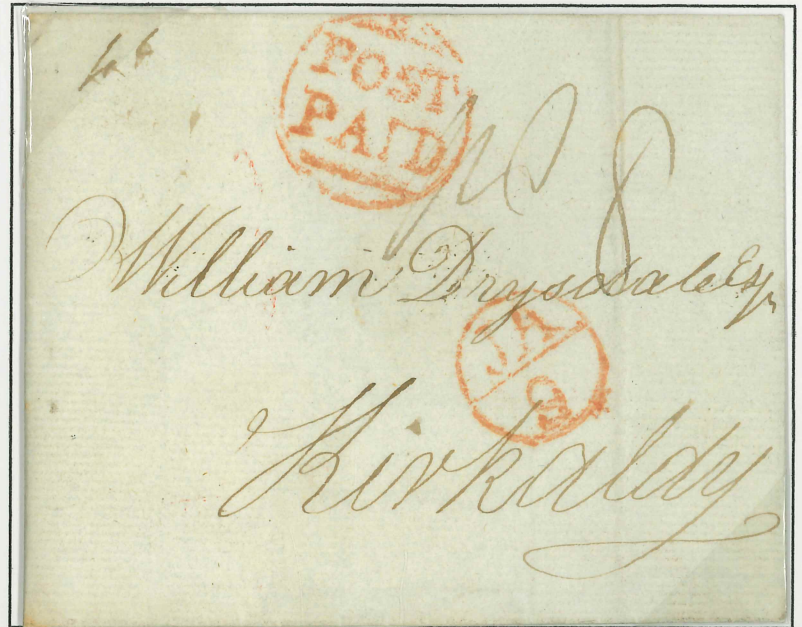 POST
PAID
8
William Drysdale Esqr
JA
9
Kirkaldy